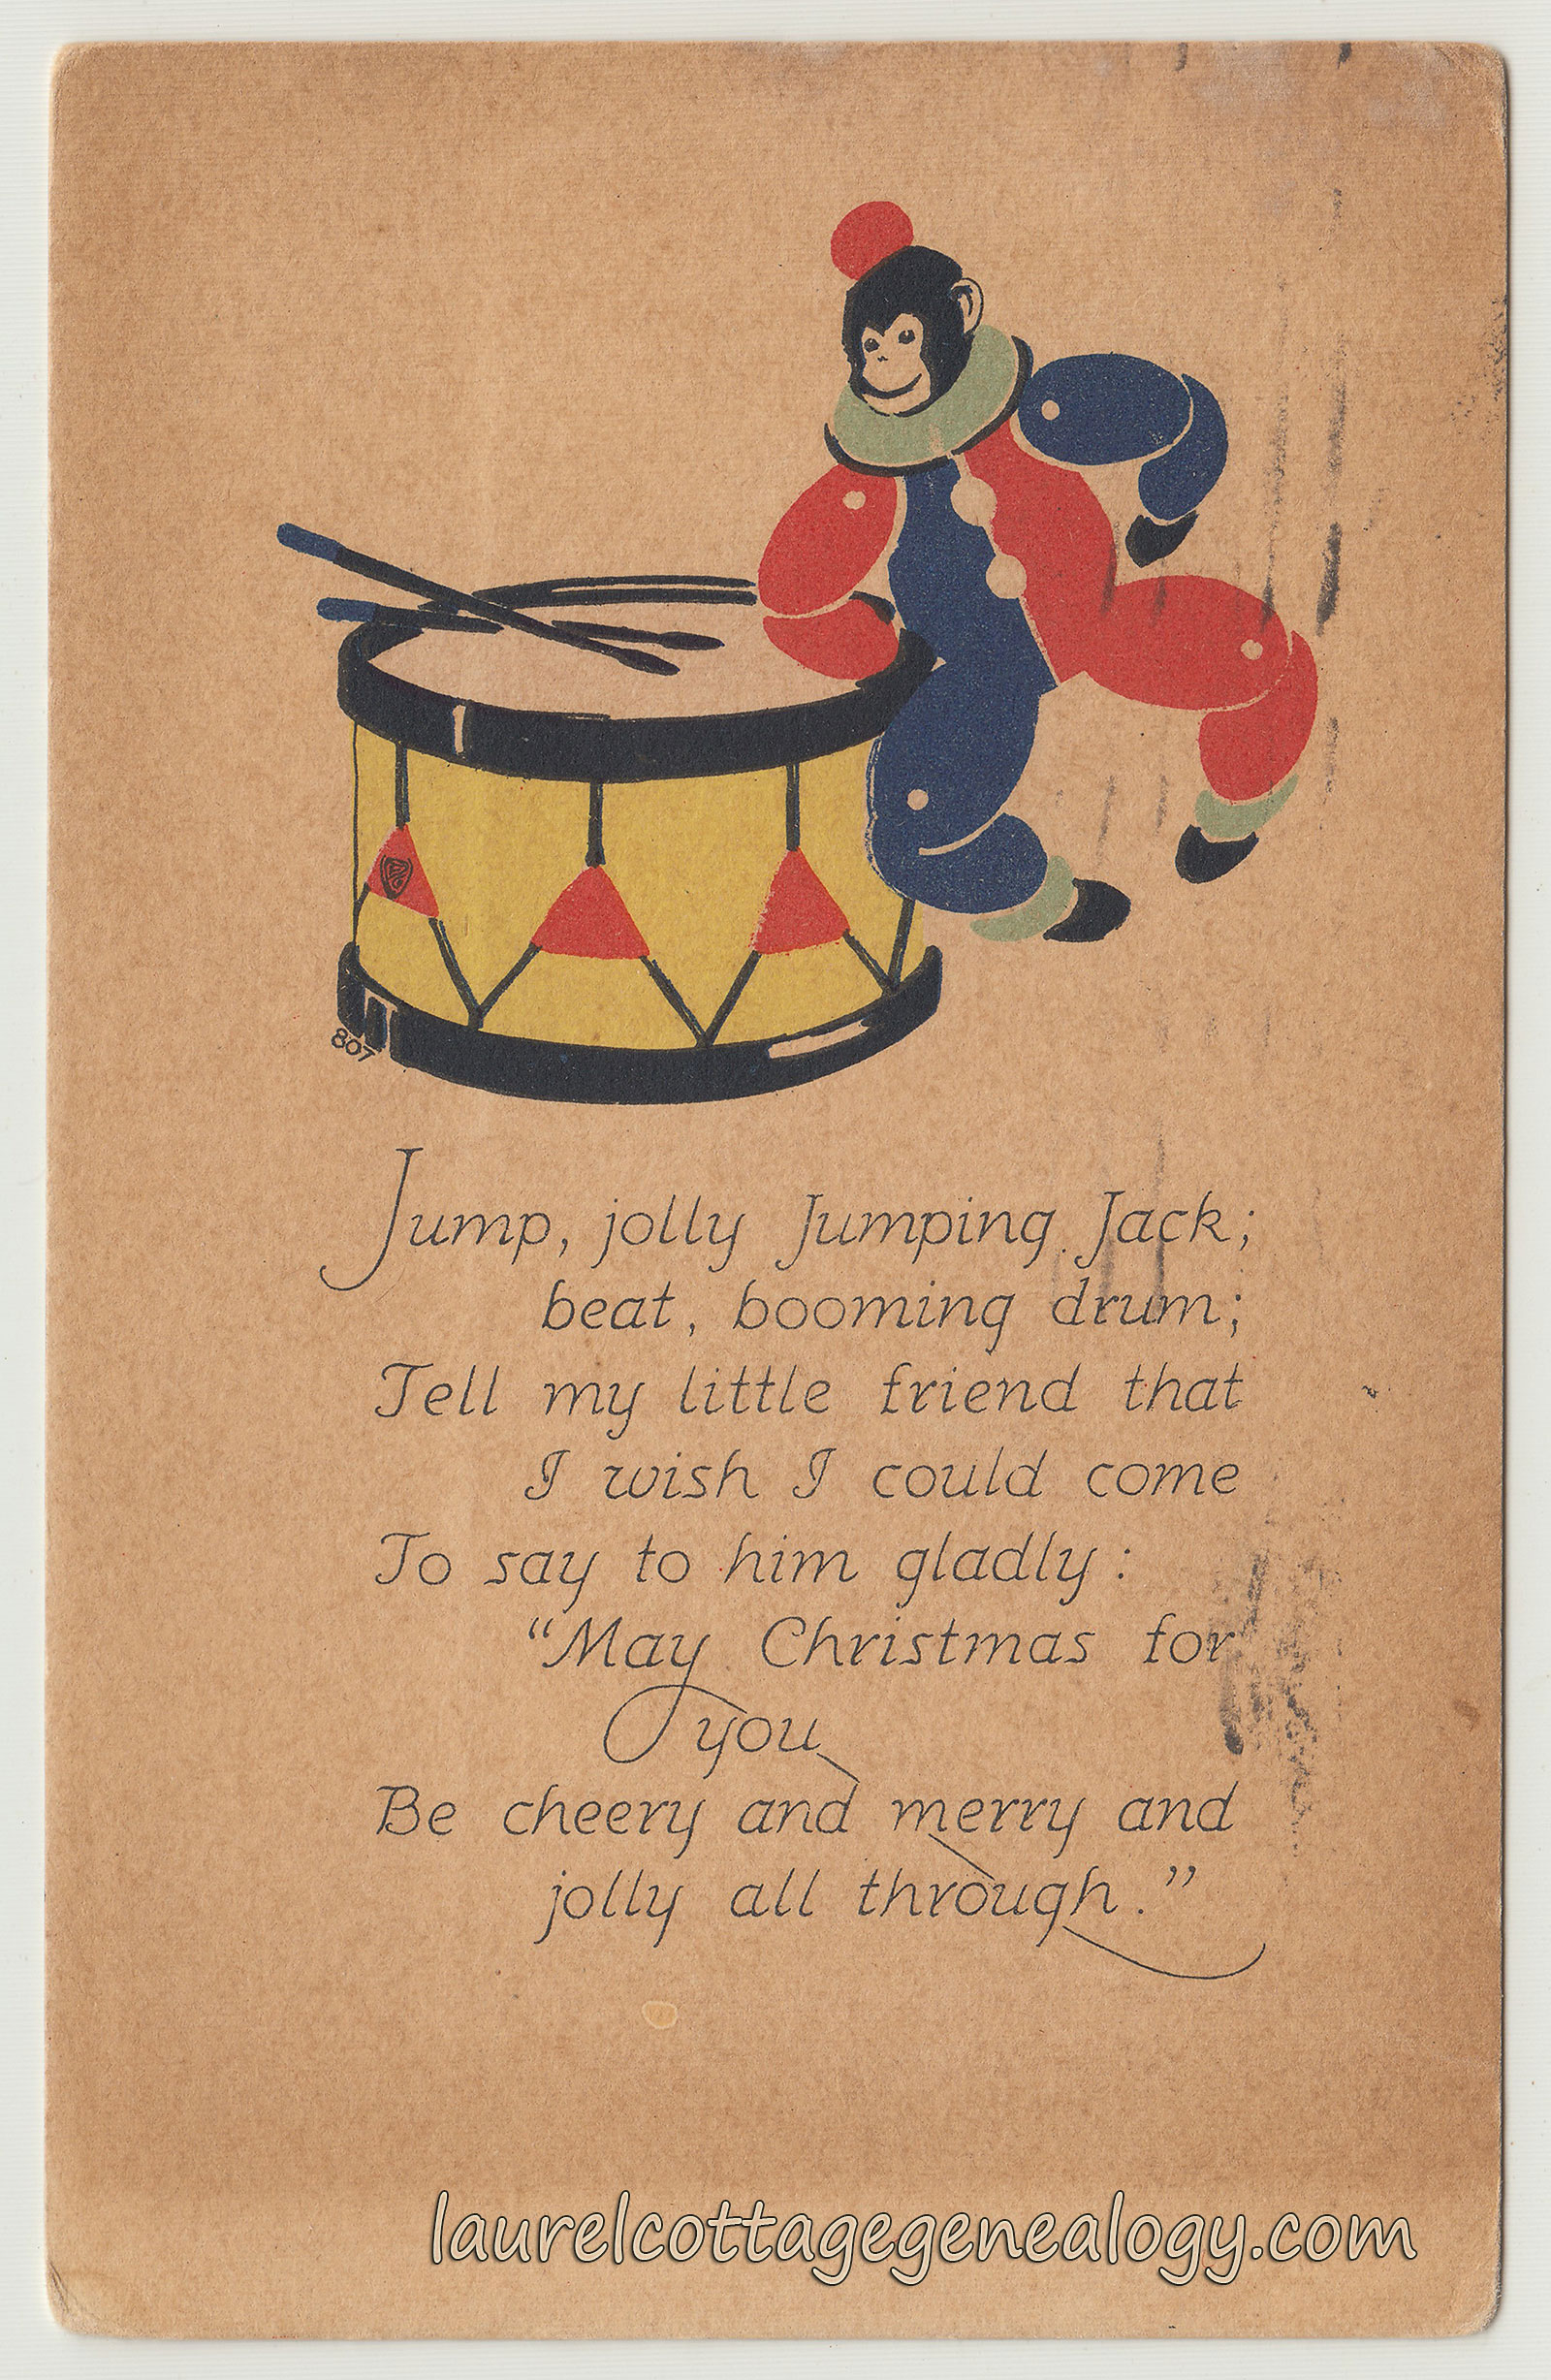 807
Jump, jolly Jumping Jack;
beat, booming drum;
Tell my little friend that
I wish I could come
To say to him gladly:
“May Christmas for
you
Be cheery and merry and
jolly all through.”
laurelcottagegenealogy.com